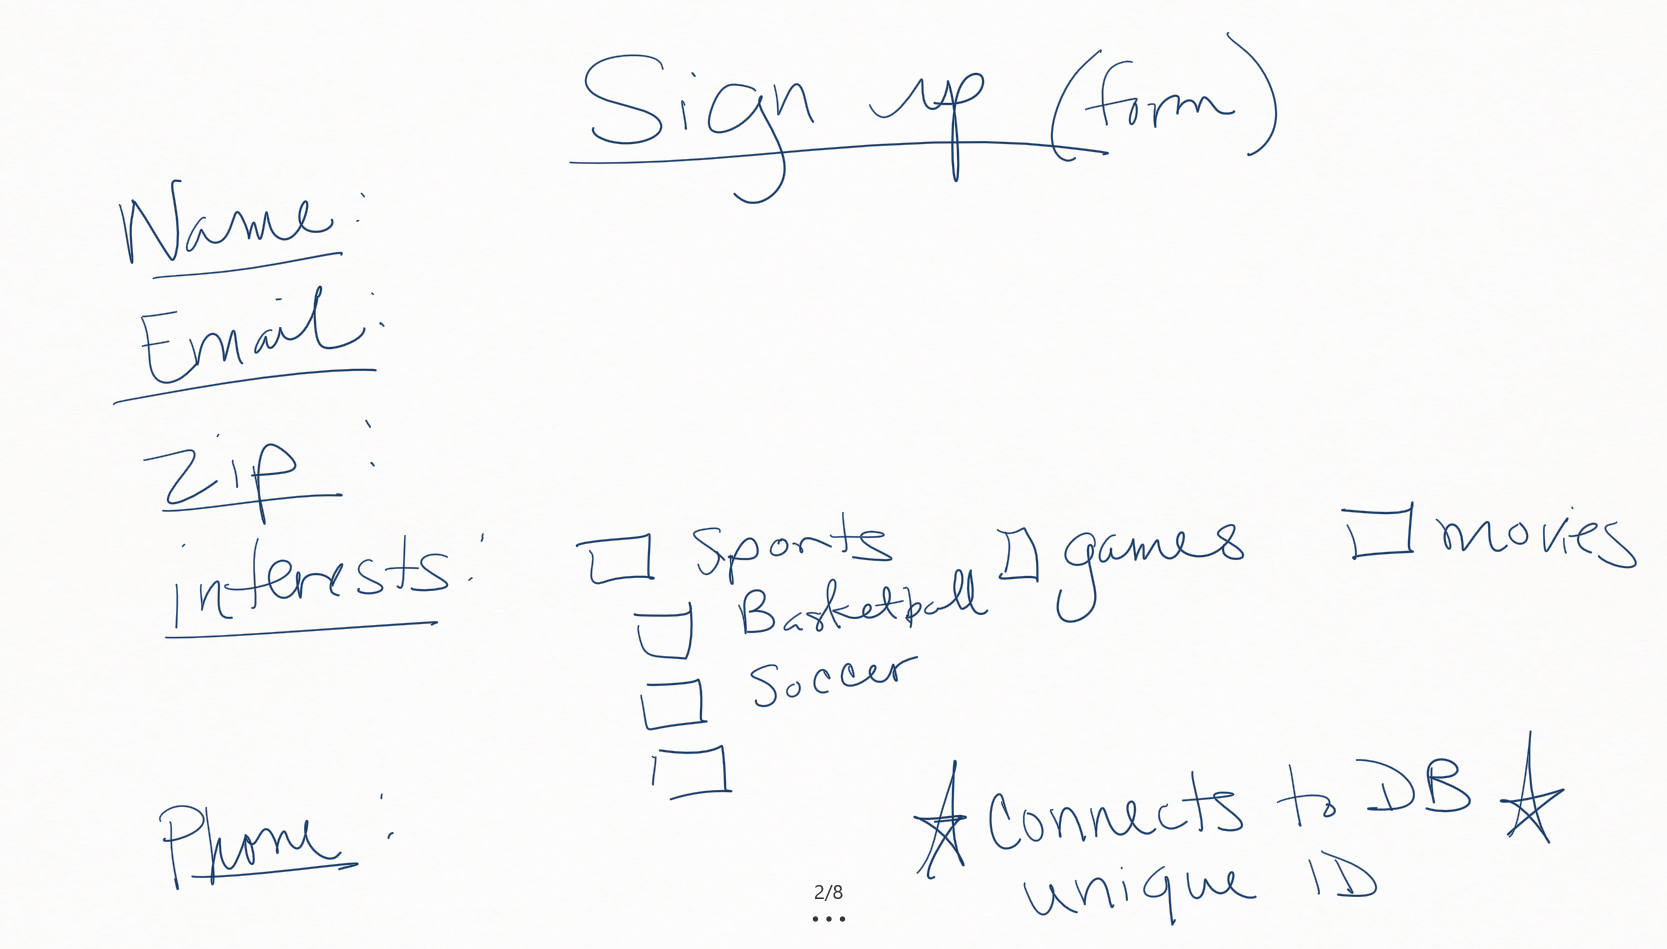 Sign up (form)
Name:
Email:
Zip:
interests: Sports games movies
Basketball
Soccer
Phone:
Connects to DB
unique ID
2/8